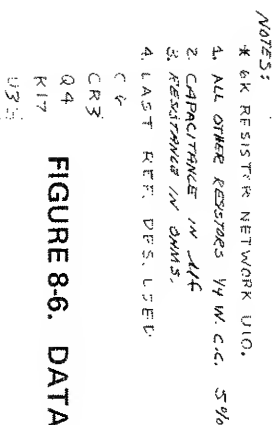 NOTES:
* 6K RESISTER NETWORK U10.
1. ALL OTHER RESISTORS 1/4 W. C.C. 5%
2. CAPACITANCE IN uf
3. RESISTANCE IN OHMS.
4. LAST REF. DES. USED
C6
CR3
Q4
R17
FIGURE 8-6. DATA